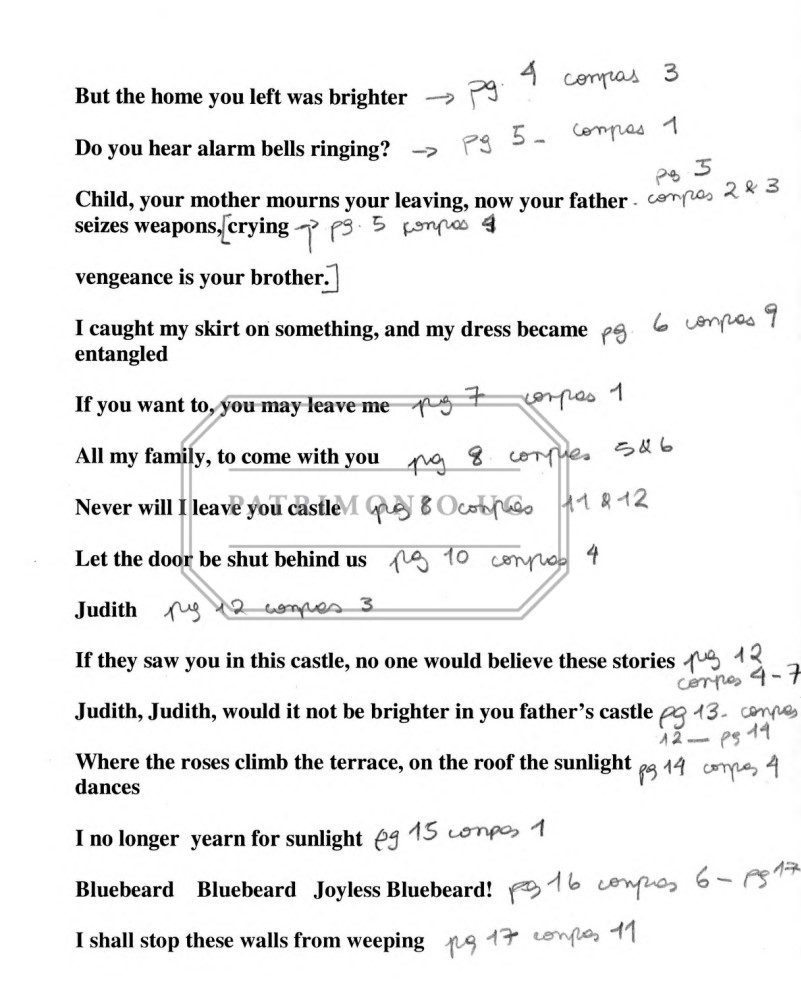 But the home you left was brighter → pg. 4 compas 3
Do you hear alarm bells ringing? → pg 5 - compas 1
pg 5
Child, your mother mourns your leaving, now your father - compas 2 & 3
seizes weapons,[crying → pg. 5 compas 4
vengeance is your brother.]
I caught my skirt on something, and my dress became pg. 6 compas 9
entangled
If you want to, you may leave me pg 7 compas 1
All my family, to come with you pg 8 compases 5&6
Never will I leave you castle pg 8 compases 11 & 12
PATRIMONIO UG
Let the door be shut behind us pg 10 compas 4
Judith pg 12 compas 3
If they saw you in this castle, no one would believe these stories pg 12
compas 4-7
Judith, Judith, would it not be brighter in you father's castle pg 13 - compas
12 — pg 14
Where the roses climb the terrace, on the roof the sunlight pg 14 compas 4
dances
I no longer yearn for sunlight pg 15 compas 1
Bluebeard Bluebeard Joyless Bluebeard! pg 16 compas 6 - pg 17
I shall stop these walls from weeping pg 17 compas 11